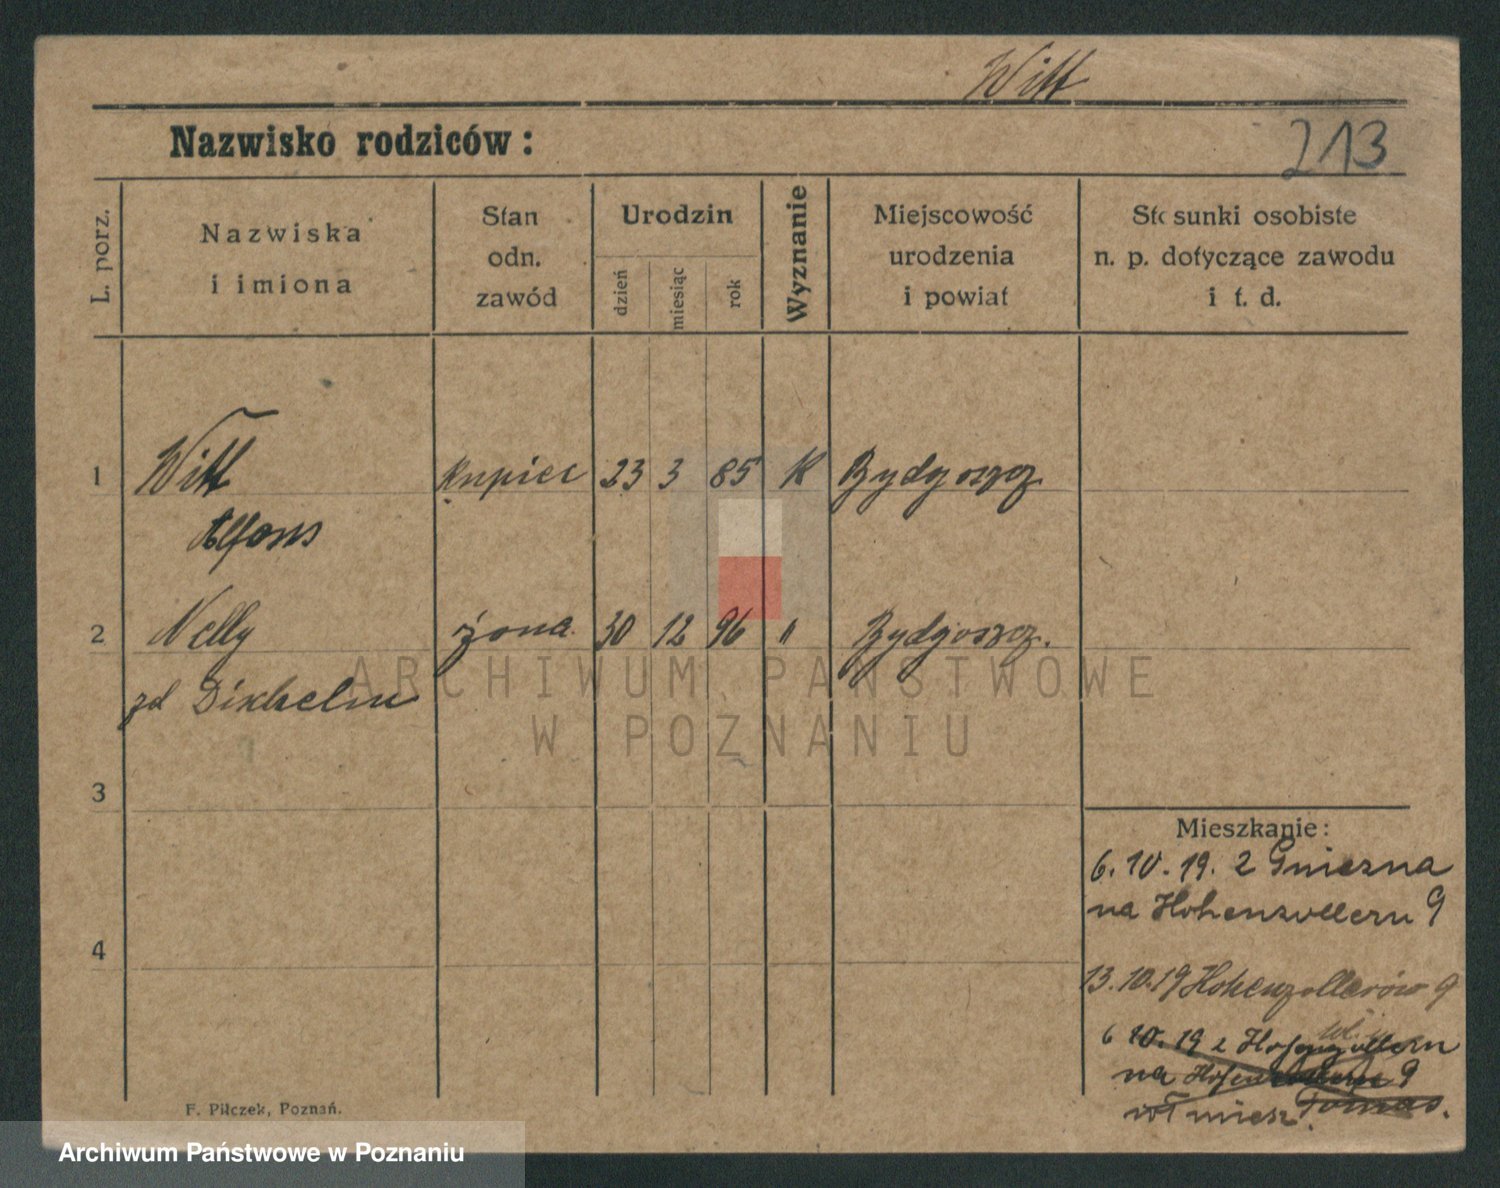 Witt
213
Nazwisko rodziców:
L. porz.
Nazwiska
i imiona
Stan
odn.
zawód
Urodzin
dzień
miesiąc
rok
Wyznanie
Miejscowość
urodzenia
i powiat
Stosunki osobiste
n. p. dotyczące zawodu
i t. d.
1 Witt kupiec 23 3 85 K Bydgoszcz
Alfons
2 Nelly żona 30 12 96 " Bydgoszcz.
zd
3
4
Mieszkanie:
6. 10. 19. z Gniezna
na Hohenzollern 9
13. 10. 19 Hohenzollerów 9
6 10. 19 z Hohenzollern
na 9
wł miesz.
F. Pilczek, Poznań.
ARCHIWUM PAŃSTWOWE
W POZNANIU
Archiwum Państwowe w Poznaniu